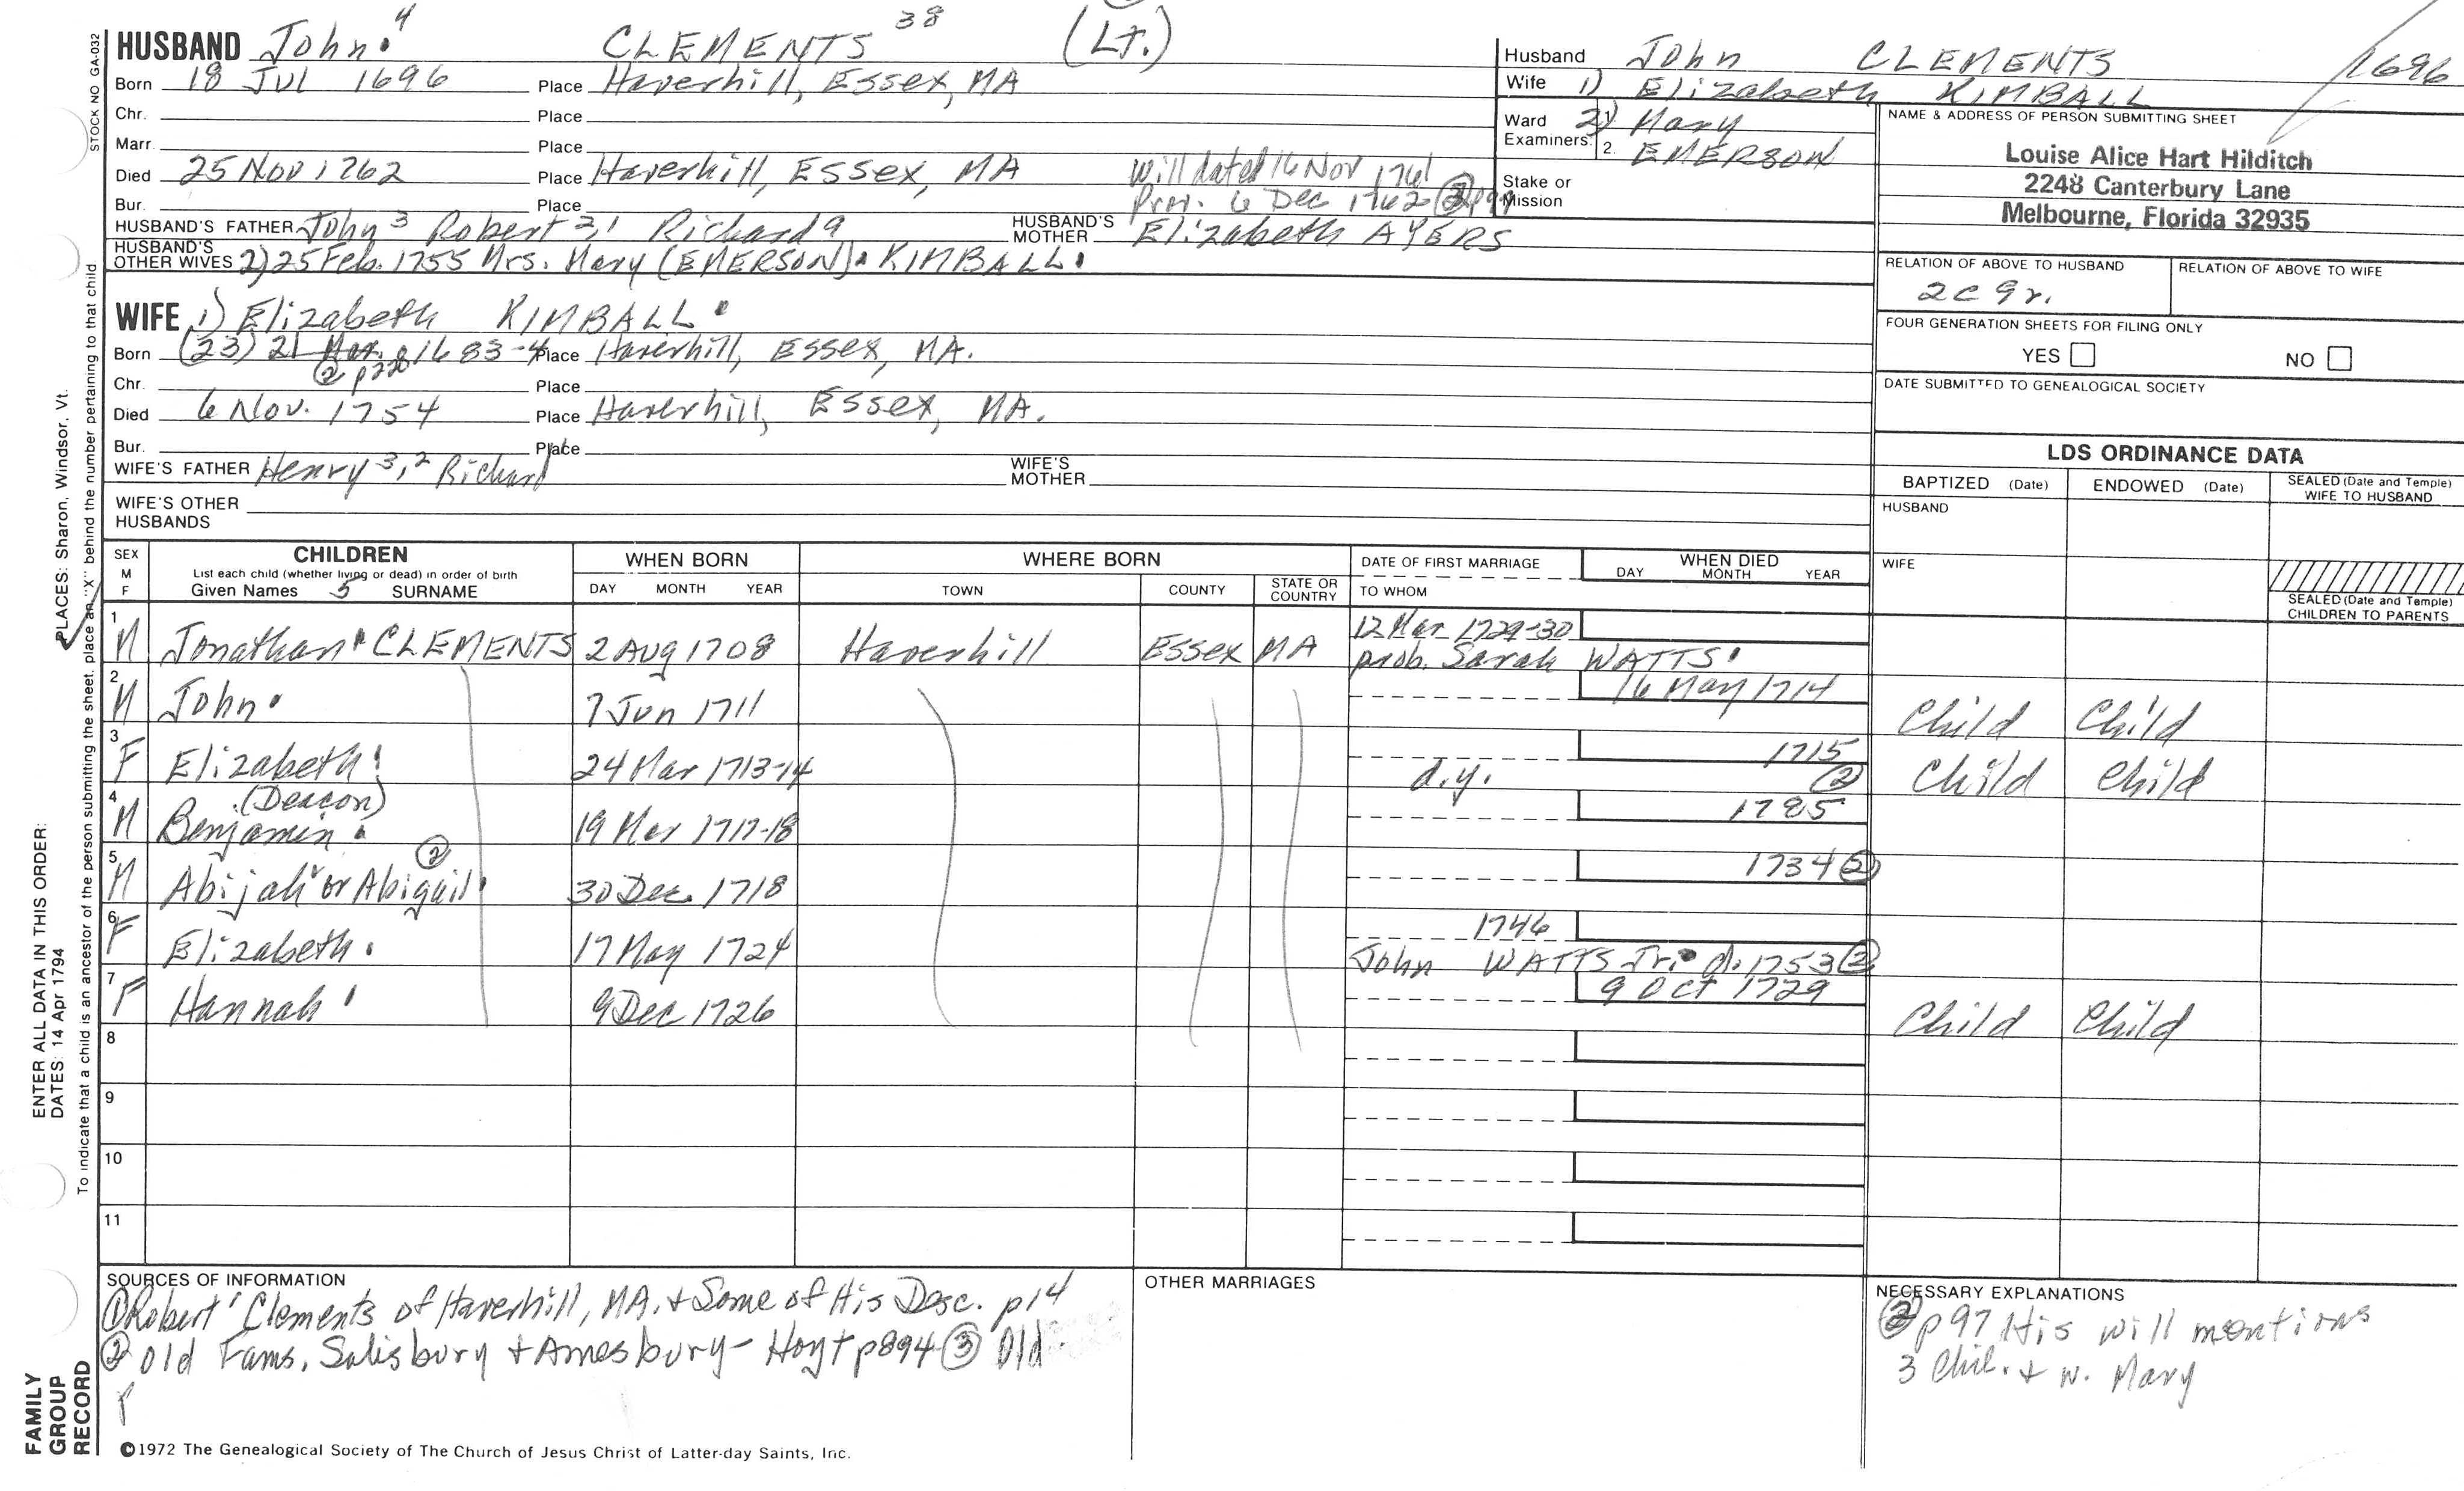 STOCK NO GA-032
HUSBAND John 4 CLEMENTS 38 (Lt.)
Born 18 Jul 1696 Place Haverhill, Essex, MA
Chr. Place
Marr. Place
Died 25 Nov 1762 Place Haverhill, Essex, MA Will dated 16 Nov 1761
Bur. Place Prov. 6 Dec 1762
HUSBAND'S FATHER John 3 Robert 2,1 Richard a HUSBAND'S MOTHER Elizabeth AYERS
HUSBAND'S OTHER WIVES 2) 25 Feb. 1755 Mrs. Mary (EMERSON) KIMBALL
WIFE 1) Elizabeth KIMBALL
Born (23) 21 Mar. 1683-4 Place Haverhill, Essex, MA.
② p220
Chr. Place
Died 6 Nov. 1754 Place Haverhill, Essex, MA.
Bur. Place
WIFE'S FATHER Henry 3,2 Richard 1 WIFE'S MOTHER
WIFE'S OTHER HUSBANDS
Husband John CLEMENTS 1696
Wife 1) Elizabeth KIMBALL
Ward Examiners: 1. 2) Mary
2. EMERSON
Stake or Mission
NAME & ADDRESS OF PERSON SUBMITTING SHEET
Louise Alice Hart Hilditch
2248 Canterbury Lane
Melbourne, Florida 32935
RELATION OF ABOVE TO HUSBAND RELATION OF ABOVE TO WIFE
2c 9r.
FOUR GENERATION SHEETS FOR FILING ONLY
YES NO
DATE SUBMITTED TO GENEALOGICAL SOCIETY
LDS ORDINANCE DATA
BAPTIZED (Date) ENDOWED (Date) SEALED (Date and Temple) WIFE TO HUSBAND
HUSBAND
WIFE
SEALED (Date and Temple) CHILDREN TO PARENTS
SEX M F CHILDREN WHEN BORN WHERE BORN DATE OF FIRST MARRIAGE WHEN DIED
List each child (whether living or dead) in order of birth
Given Names 5 SURNAME DAY MONTH YEAR TOWN COUNTY STATE OR COUNTRY TO WHOM DAY MONTH YEAR
1 M Jonathan CLEMENTS 2 Aug 1708 Haverhill Essex MA 12 Mar 1729-30
prob. Sarah WATTS
2 M John 7 Jun 1711 16 May 1714 Child Child
3 F Elizabeth 24 Mar 1713-14 d.y. 1715 ② Child Child
4 M (Deacon) Benjamin 19 Mar 1717-18 1785
5 M Abijah or Abigail ② 30 Dec. 1718 1734 ②
6 F Elizabeth 17 May 1724 1746
John WATTS Jr. d. 1753 ②
7 F Hannah 9 Dec 1726 9 Oct 1729 Child Child
8
9
10
11
SOURCES OF INFORMATION
① Robert 1 Clements of Haverhill, MA. + Some of His Desc. p14
② Old Fams. Salisbury + Amesbury - Hoyt p894 ③ Old
p
OTHER MARRIAGES
NECESSARY EXPLANATIONS
② p97 His will mentions
3 Chil. + w. Mary
©1972 The Genealogical Society of The Church of Jesus Christ of Latter-day Saints, Inc.
FAMILY
GROUP
RECORD
ENTER ALL DATA IN THIS ORDER:
DATES: 14 Apr 1794
PLACES: Sharon, Windsor, Vt.
To indicate that a child is an ancestor of the person submitting the sheet, place an "X" behind the number pertaining to that child